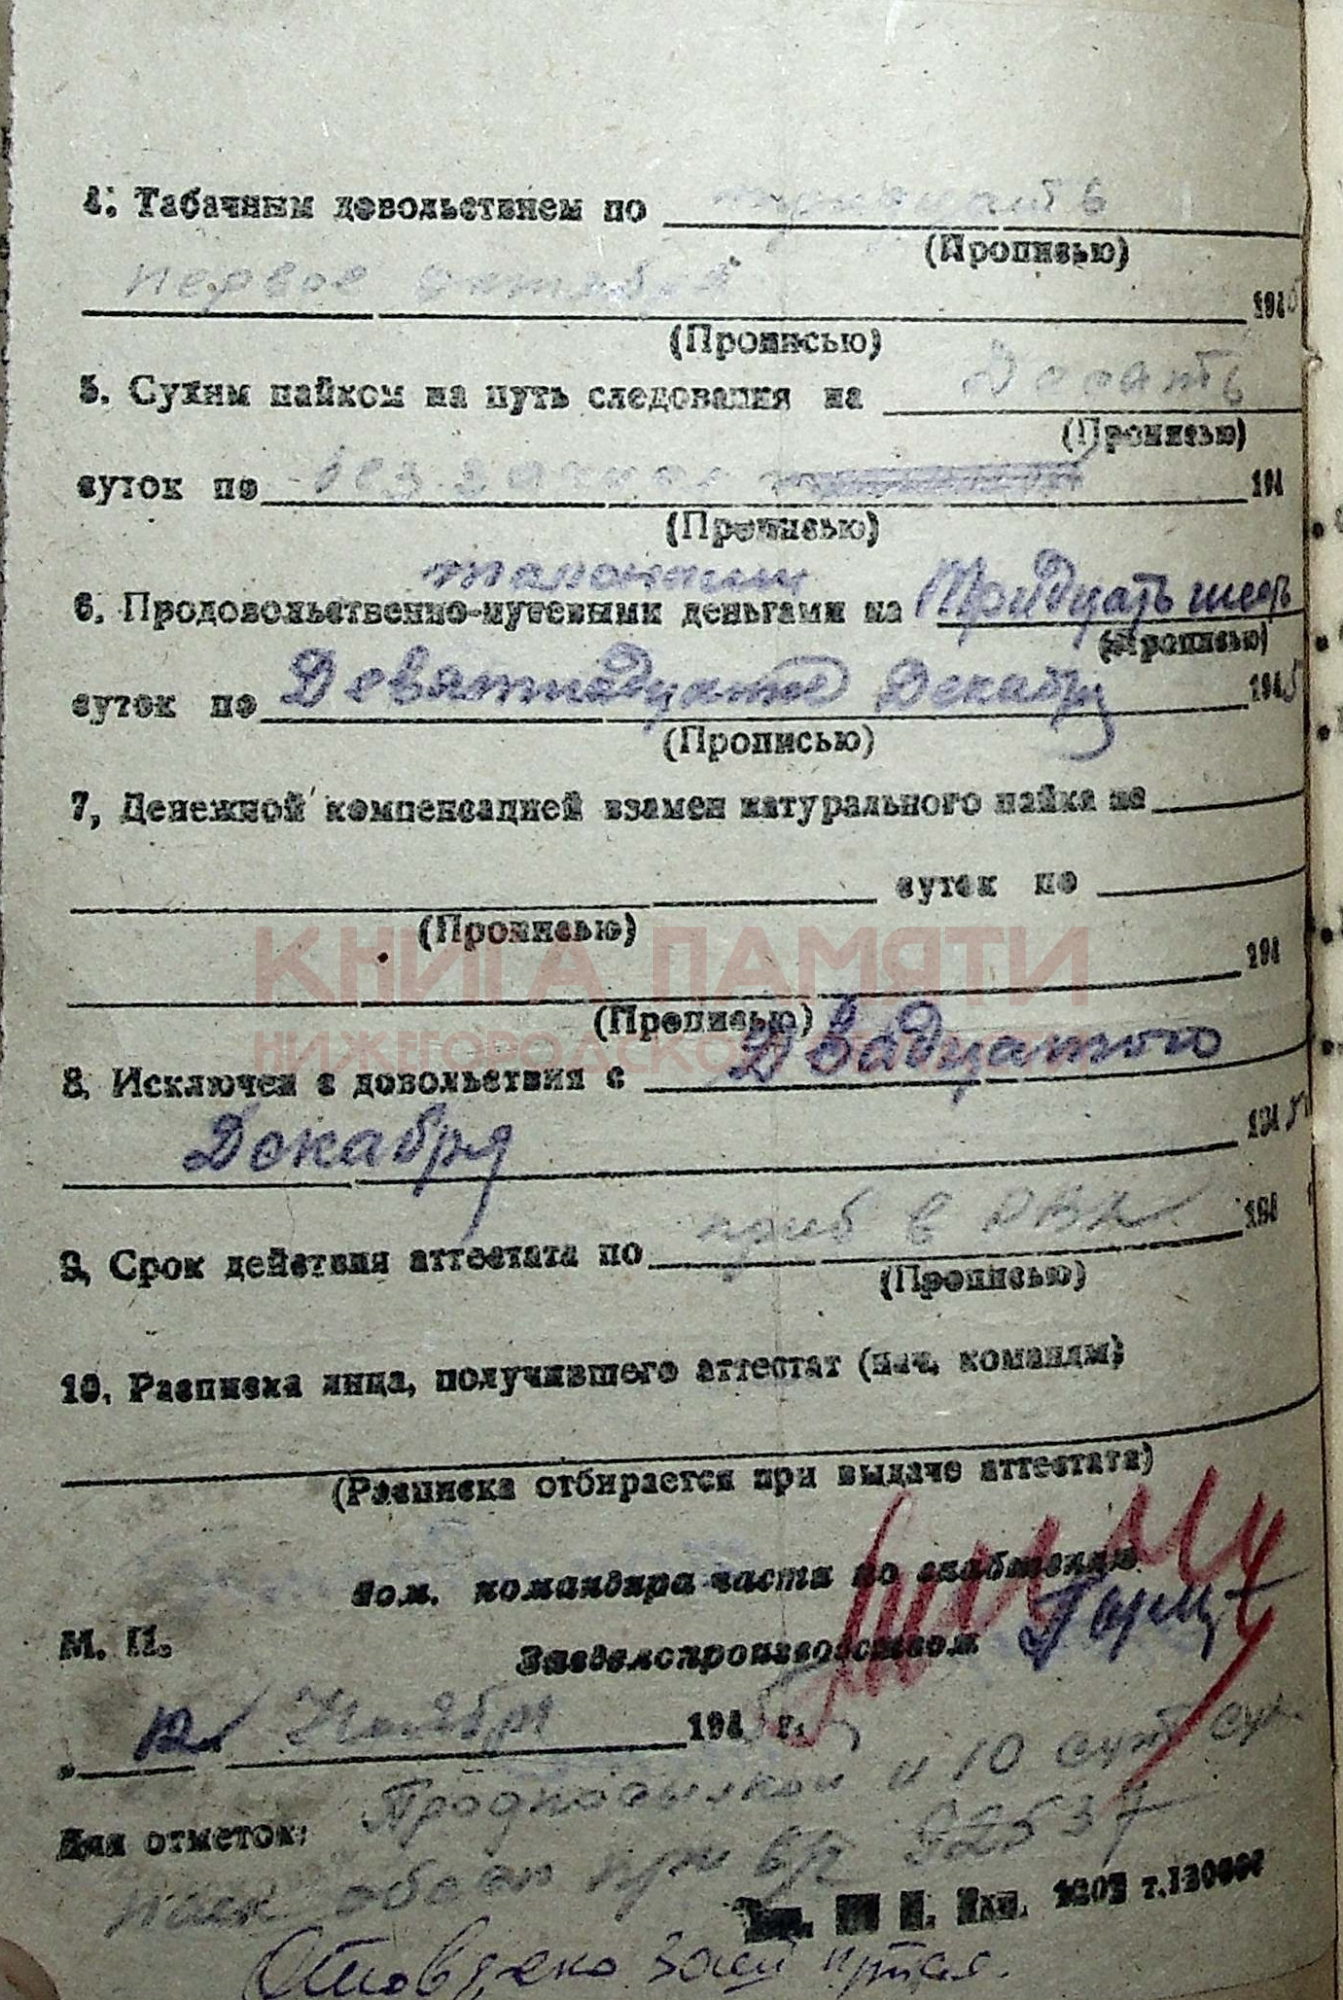 4. Табачным довольствием по тридцать
(Прописью)
первое октября 1945
(Прописью)
5. Сухим пайком на путь следования на Десять
(Прописью)
суток по без зачёта 194
(Прописью)
талонами
6. Продовольственно-путевыми деньгами на Тридцать шесть
(Прописью)
суток по Девятнадцатое Декабря 1945
(Прописью)
7, Денежной компенсацией взамен натурального пайка на
суток по
(Прописью)
194
(Прописью)
КНИГА ПАМЯТИ
НИЖЕГОРОДСКОЙ ОБЛАСТИ
8. Исключен с довольствия с Двадцатого
Декабря 1945
9, Срок действия аттестата по приб в 194
(Прописью)
10, Расписка лица, получившего аттестат (нач. команды)
(Расписка отбирается при выдаче аттестата)
пом. командира части по снабжению
М. П. Завделопроизводством
12 Ноября 1945 г.
Для отметок: Продпосылкой и 10 сут сух.
паек обесп при в/ч 92637
Зак. 1203 т.130000